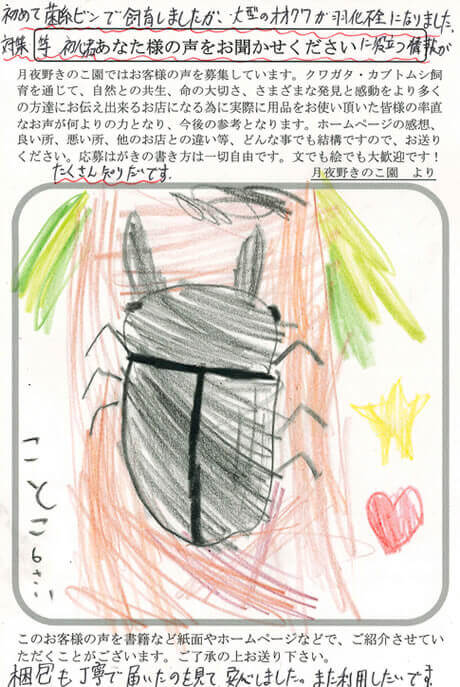 初めて菌糸ビンで飼育しましたが、大型のオオクワが羽化不全になりました。
対策等 初心者 に役立つ情報が
あなた様の声をお聞かせください
月夜野きのこ園ではお客様の声を募集しています。クワガタ・カブトムシ飼
育を通じて、自然との共生、命の大切さ、さまざまな発見と感動をより多く
の方達にお伝え出来るお店になる為に実際に用品をお使い頂いた皆様の率直
なお声が何よりの力となり、今後の参考となります。ホームページの感想、
良い所、悪い所、他のお店との違い等、どんな事でも結構ですので、お送り
ください。応募はがきの書き方は一切自由です。文でも絵でも大歓迎です！
たくさん知りたいです。
月夜野きのこ園　より
ことこ
6さい
このお客様の声を書籍など紙面やホームページなどで、ご紹介させてい
ただくことがございます。ご了承の上お送り下さい。
梱包も丁寧で届いたのを見て安心しました。また利用したいです。